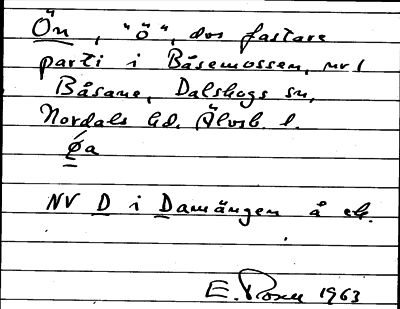 Ön, "ö", dvs fastare
parti i Båsemossen, nr 1
Båsane, Dalskogs sn,
Nordals hd. Älvsb. l.
øa
NV D i Damängen å ek.
E. Rosen 1963